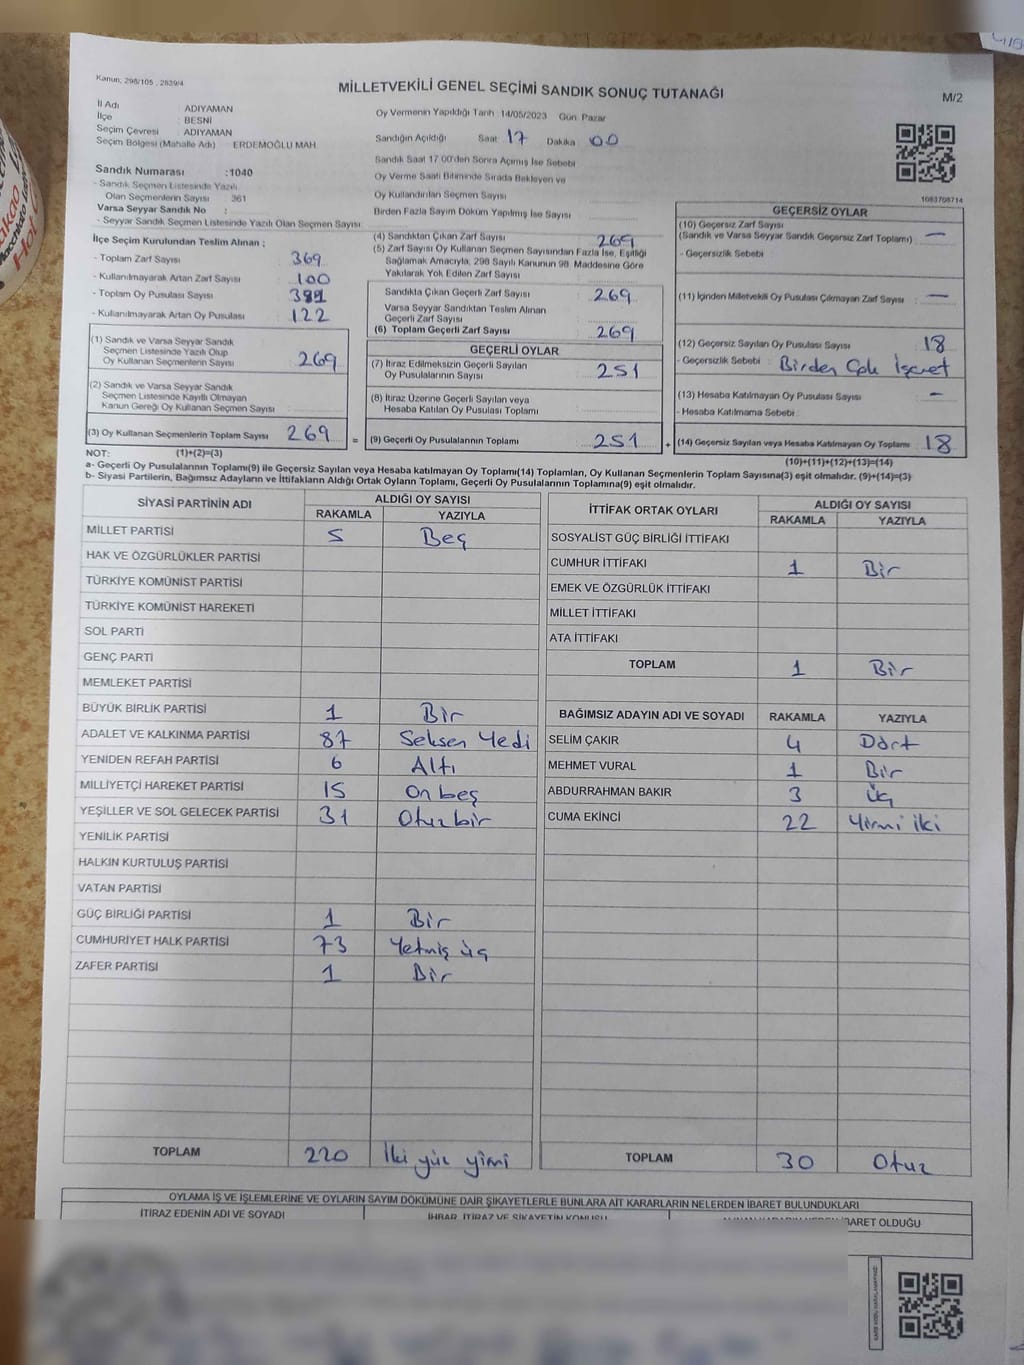 Kanun: 298/105 , 2839/4
MİLLETVEKİLİ GENEL SEÇİMİ SANDIK SONUÇ TUTANAĞI
M/2
İl Adı : ADIYAMAN
İlçe : BESNİ
Seçim Çevresi : ADIYAMAN
Seçim Bölgesi (Mahalle Adı) : ERDEMOĞLU MAH.
Oy Vermenin Yapıldığı Tarih : 14/05/2023 Gün: Pazar
Sandığın Açıldığı Saat 17 Dakika 00
Sandık Saat 17:00'den Sonra Açılmış İse Sebebi
Oy Verme Saati Bitiminde Sırada Bekleyen ve
Oy Kullandırılan Seçmen Sayısı
Birden Fazla Sayım Döküm Yapılmış İse Sayısı
1083708714
Sandık Numarası :1040
- Sandık Seçmen Listesinde Yazılı
Olan Seçmenlerin Sayısı : 361
Varsa Seyyar Sandık No :
- Seyyar Sandık Seçmen Listesinde Yazılı Olan Seçmen Sayısı
İlçe Seçim Kurulundan Teslim Alınan ;
- Toplam Zarf Sayısı 369
- Kullanılmayarak Artan Zarf Sayısı 100
- Toplam Oy Pusulası Sayısı 391
- Kullanılmayarak Artan Oy Pusulası 122
(1) Sandık ve Varsa Seyyar Sandık
Seçmen Listesinde Yazılı Olup
Oy Kullanan Seçmenlerin Sayısı 269
(2) Sandık ve Varsa Seyyar Sandık
Seçmen Listesinde Kayıtlı Olmayan
Kanun Gereği Oy Kullanan Seçmen Sayısı
(3) Oy Kullanan Seçmenlerin Toplam Sayısı 269 =
(4) Sandıktan Çıkan Zarf Sayısı 269
(5) Zarf Sayısı Oy Kullanan Seçmen Sayısından Fazla İse, Eşitliği
Sağlamak Amacıyla, 298 Sayılı Kanunun 98. Maddesine Göre
Yakılarak Yok Edilen Zarf Sayısı
Sandıkta Çıkan Geçerli Zarf Sayısı 269
Varsa Seyyar Sandıktan Teslim Alınan
Geçerli Zarf Sayısı
(6) Toplam Geçerli Zarf Sayısı 269
GEÇERLİ OYLAR
(7) İtiraz Edilmeksizin Geçerli Sayılan
Oy Pusulalarının Sayısı 251
(8) İtiraz Üzerine Geçerli Sayılan veya
Hesaba Katılan Oy Pusulası Toplamı
(9) Geçerli Oy Pusulalarının Toplamı 251 +
GEÇERSİZ OYLAR
(10) Geçersiz Zarf Sayısı
(Sandık ve Varsa Seyyar Sandık Geçersiz Zarf Toplamı) : —
- Geçersizlik Sebebi :
(11) İçinden Milletvekili Oy Pusulası Çıkmayan Zarf Sayısı : —
(12) Geçersiz Sayılan Oy Pusulası Sayısı : 18
- Geçersizlik Sebebi : Birden Çok İşaret
(13) Hesaba Katılmayan Oy Pusulası Sayısı : -
- Hesaba Katılmama Sebebi :
(14) Geçersiz Sayılan veya Hesaba Katılmayan Oy Toplamı 18
NOT: (1)+(2)=(3)
(10)+(11)+(12)+(13)=(14)
a- Geçerli Oy Pusulalarının Toplamı(9) ile Geçersiz Sayılan veya Hesaba katılmayan Oy Toplamı(14) Toplamları, Oy Kullanan Seçmenlerin Toplam Sayısına(3) eşit olmalıdır. (9)+(14)=(3)
b- Siyasi Partilerin, Bağımsız Adayların ve İttifakların Aldığı Ortak Oyların Toplamı, Geçerli Oy Pusulalarının Toplamına(9) eşit olmalıdır.
SİYASİ PARTİNİN ADI ALDIĞI OY SAYISI
RAKAMLA YAZIYLA
MİLLET PARTİSİ 5 Beş
HAK VE ÖZGÜRLÜKLER PARTİSİ
TÜRKİYE KOMÜNİST PARTİSİ
TÜRKİYE KOMÜNİST HAREKETİ
SOL PARTİ
GENÇ PARTİ
MEMLEKET PARTİSİ
BÜYÜK BİRLİK PARTİSİ 1 Bir
ADALET VE KALKINMA PARTİSİ 87 Seksen Yedi
YENİDEN REFAH PARTİSİ 6 Altı
MİLLİYETÇİ HAREKET PARTİSİ 15 On beş
YEŞİLLER VE SOL GELECEK PARTİSİ 31 Otuz bir
YENİLİK PARTİSİ
HALKIN KURTULUŞ PARTİSİ
VATAN PARTİSİ
GÜÇ BİRLİĞİ PARTİSİ 1 Bir
CUMHURİYET HALK PARTİSİ 73 Yetmiş üç
ZAFER PARTİSİ 1 Bir
TOPLAM 220 İki yüz yirmi
İTTİFAK ORTAK OYLARI ALDIĞI OY SAYISI
RAKAMLA YAZIYLA
SOSYALİST GÜÇ BİRLİĞİ İTTİFAKI
CUMHUR İTTİFAKI 1 Bir
EMEK VE ÖZGÜRLÜK İTTİFAKI
MİLLET İTTİFAKI
ATA İTTİFAKI
TOPLAM 1 Bir
BAĞIMSIZ ADAYIN ADI VE SOYADI RAKAMLA YAZIYLA
SELİM ÇAKIR 4 Dört
MEHMET VURAL 1 Bir
ABDURRAHMAN BAKIR 3 üç
CUMA EKİNCİ 22 Yirmi iki
TOPLAM 30 Otuz
OYLAMA İŞ VE İŞLEMLERİNE VE OYLARIN SAYIM DÖKÜMÜNE DAİR ŞİKAYETLERLE BUNLARA AİT KARARLARIN NELERDEN İBARET BULUNDUKLARI
İTİRAZ EDENİN ADI VE SOYADI
İHBAR, İTİRAZ VE ŞİKAYETİN KONUSU
İBARET OLDUĞU